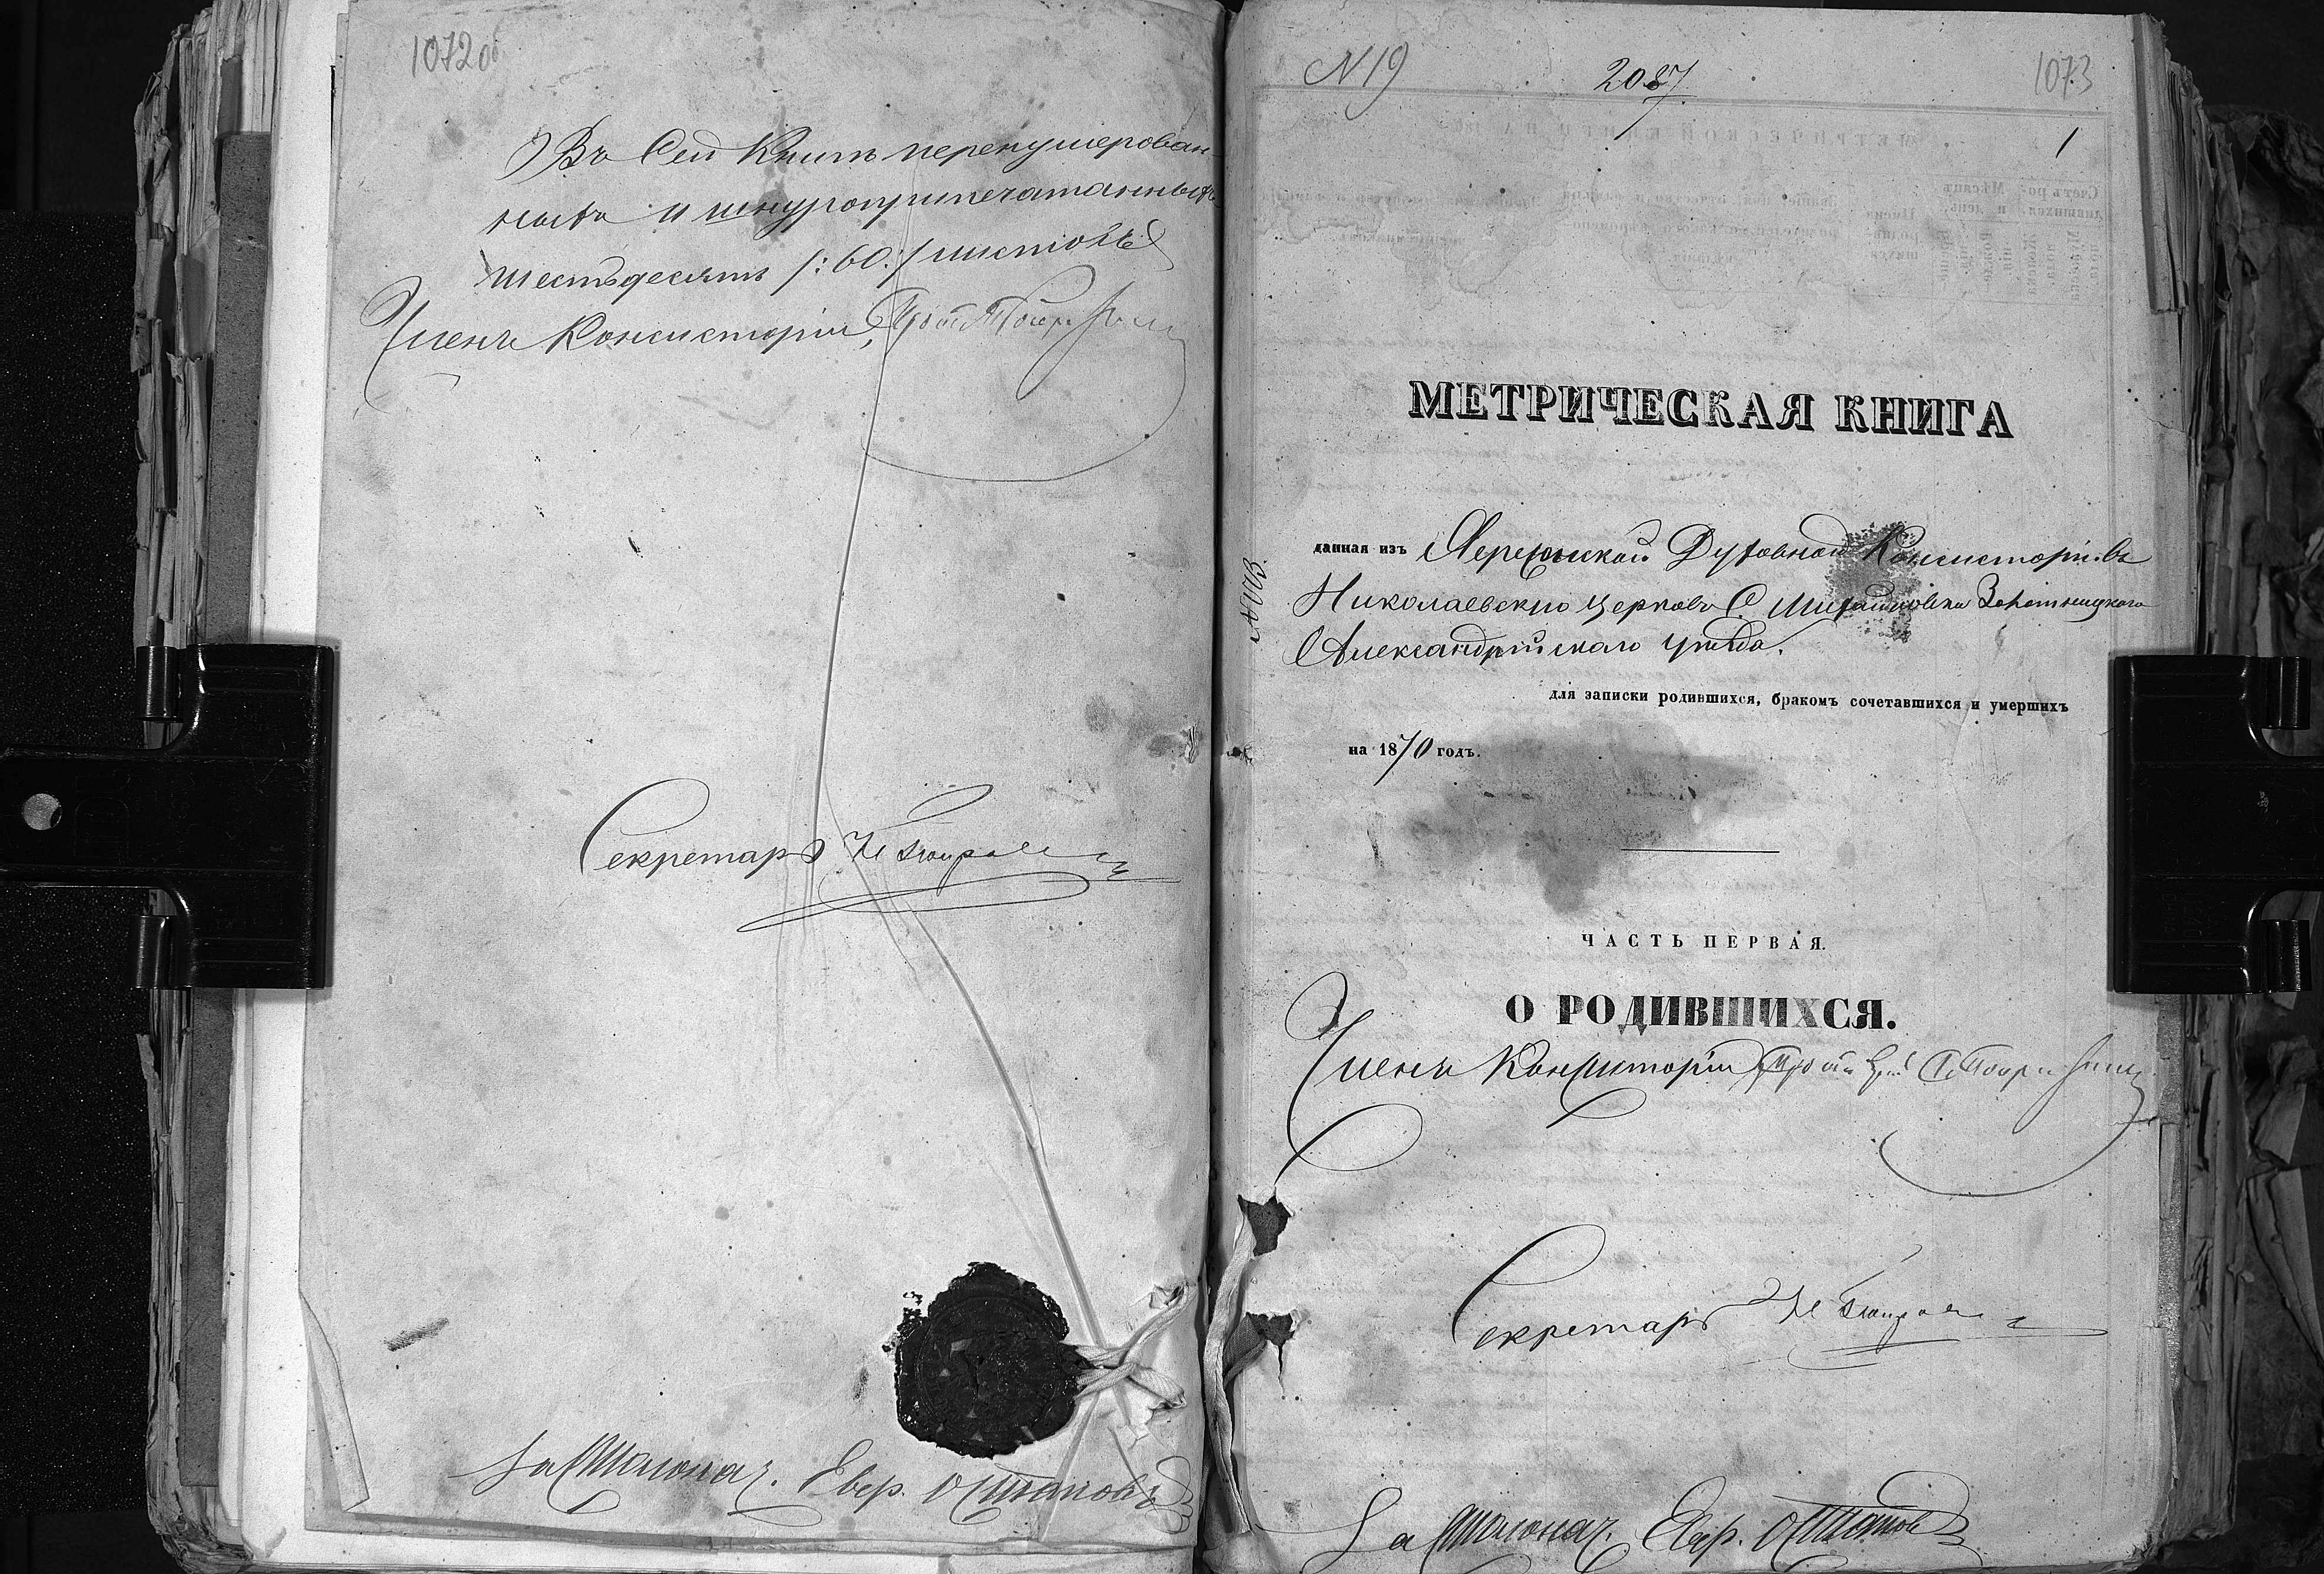 1072об
Въ Сей Книгѣ перенумерован-
ныхъ и шнуроприпечатанныхъ
шестьдесятъ /:60:/ листовъ
Членъ Консисторіи, Прот.
Секретарь
За Столонач. Евер. Остаповъ
N19
2087
1073
1
МЕТРИЧЕСКАЯ КНИГА
данная изъ Херсонской Духовной Консисторіи въ
Николаевскую церковь С. Михайловки
Александрійскаго уѣзда.
для записки родившихся, бракомъ сочетавшихся и умершихъ
на 1870 годъ.
ЧАСТЬ ПЕРВАЯ.
О РОДИВШИХСЯ.
Членъ Консисторіи
Секретарь
За Столонач. Евер. Остаповъ